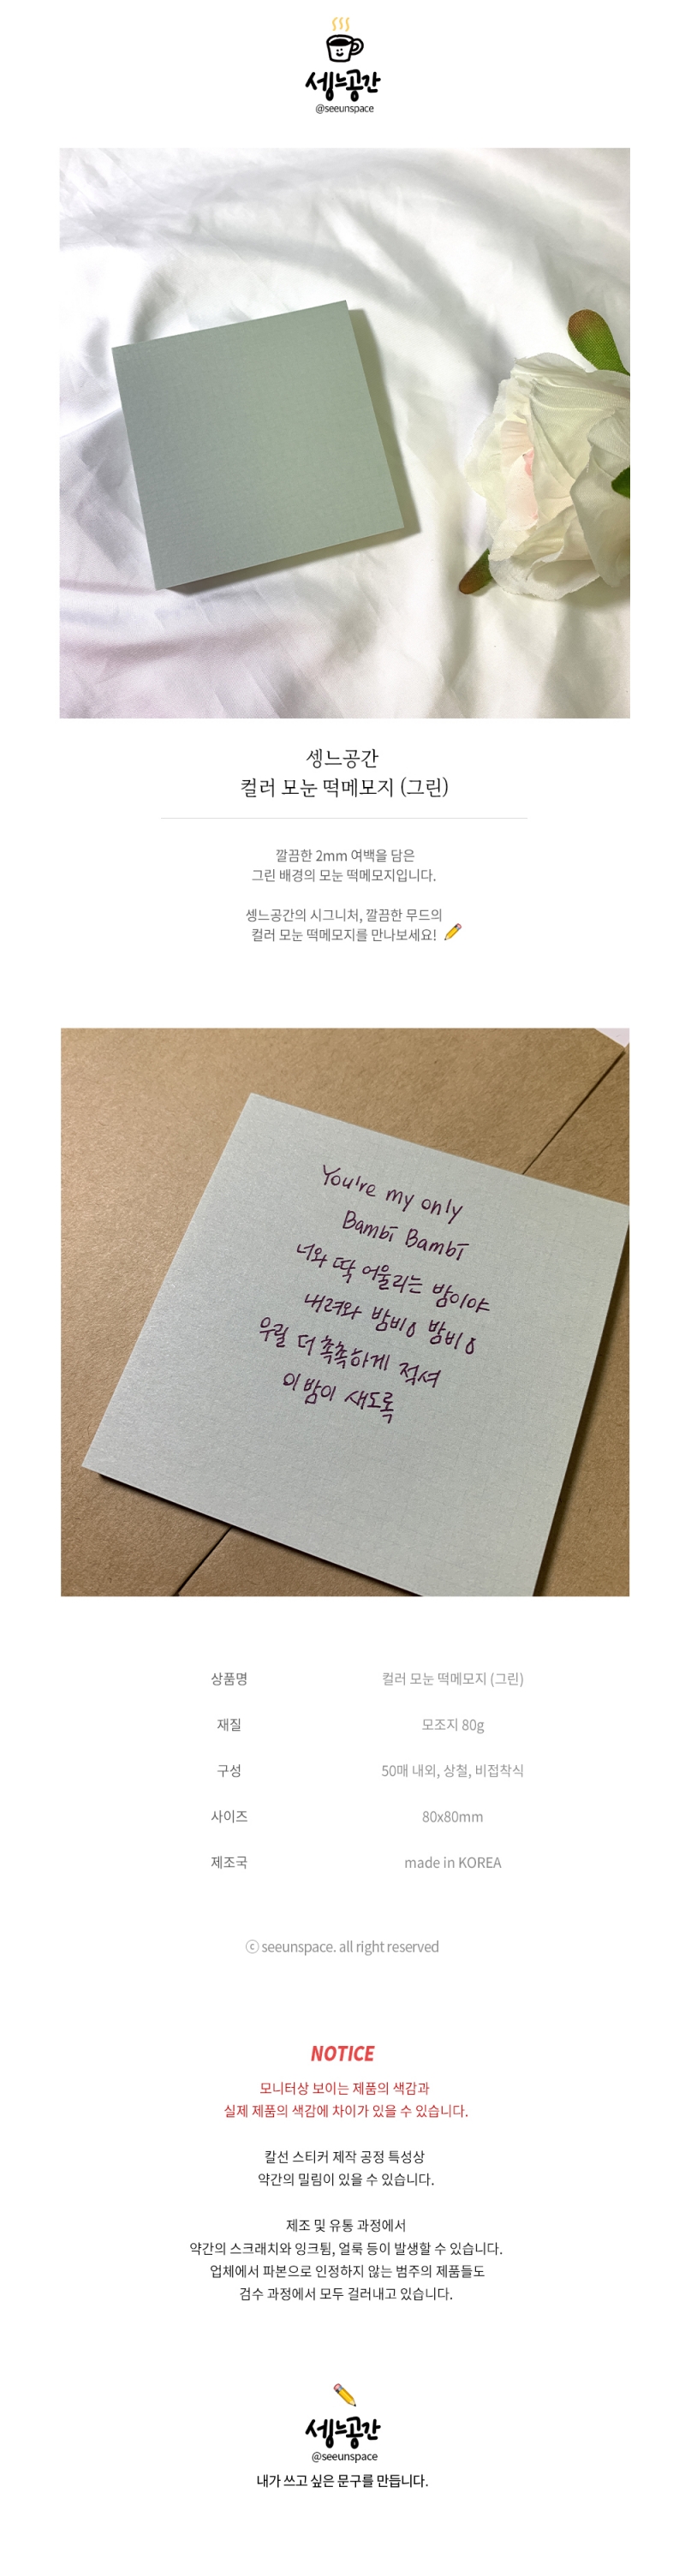 셍느공간
@seeunspace
셍느공간
컬러 모눈 떡메모지 (그린)
깔끔한 2mm 여백을 담은
그린 배경의 모눈 떡메모지입니다.
셍느공간의 시그니처, 깔끔한 무드의
컬러 모눈 떡메모지를 만나보세요!
You're my only
Bambi Bambi
너와 딱 어울리는 밤이야
내려와 밤비 밤비
우릴 더 촉촉하게 적셔
이 밤이 새도록
상품명 컬러 모눈 떡메모지 (그린)
재질 모조지 80g
구성 50매 내외, 상철, 비접착식
사이즈 80x80mm
제조국 made in KOREA
ⓒ seeunspace. all right reserved
NOTICE
모니터상 보이는 제품의 색감과
실제 제품의 색감에 차이가 있을 수 있습니다.
칼선 스티커 제작 공정 특성상
약간의 밀림이 있을 수 있습니다.
제조 및 유통 과정에서
약간의 스크래치와 잉크튐, 얼룩 등이 발생할 수 있습니다.
업체에서 파본으로 인정하지 않는 범주의 제품들도
검수 과정에서 모두 걸러내고 있습니다.
셍느공간
@seeunspace
내가 쓰고 싶은 문구를 만듭니다.